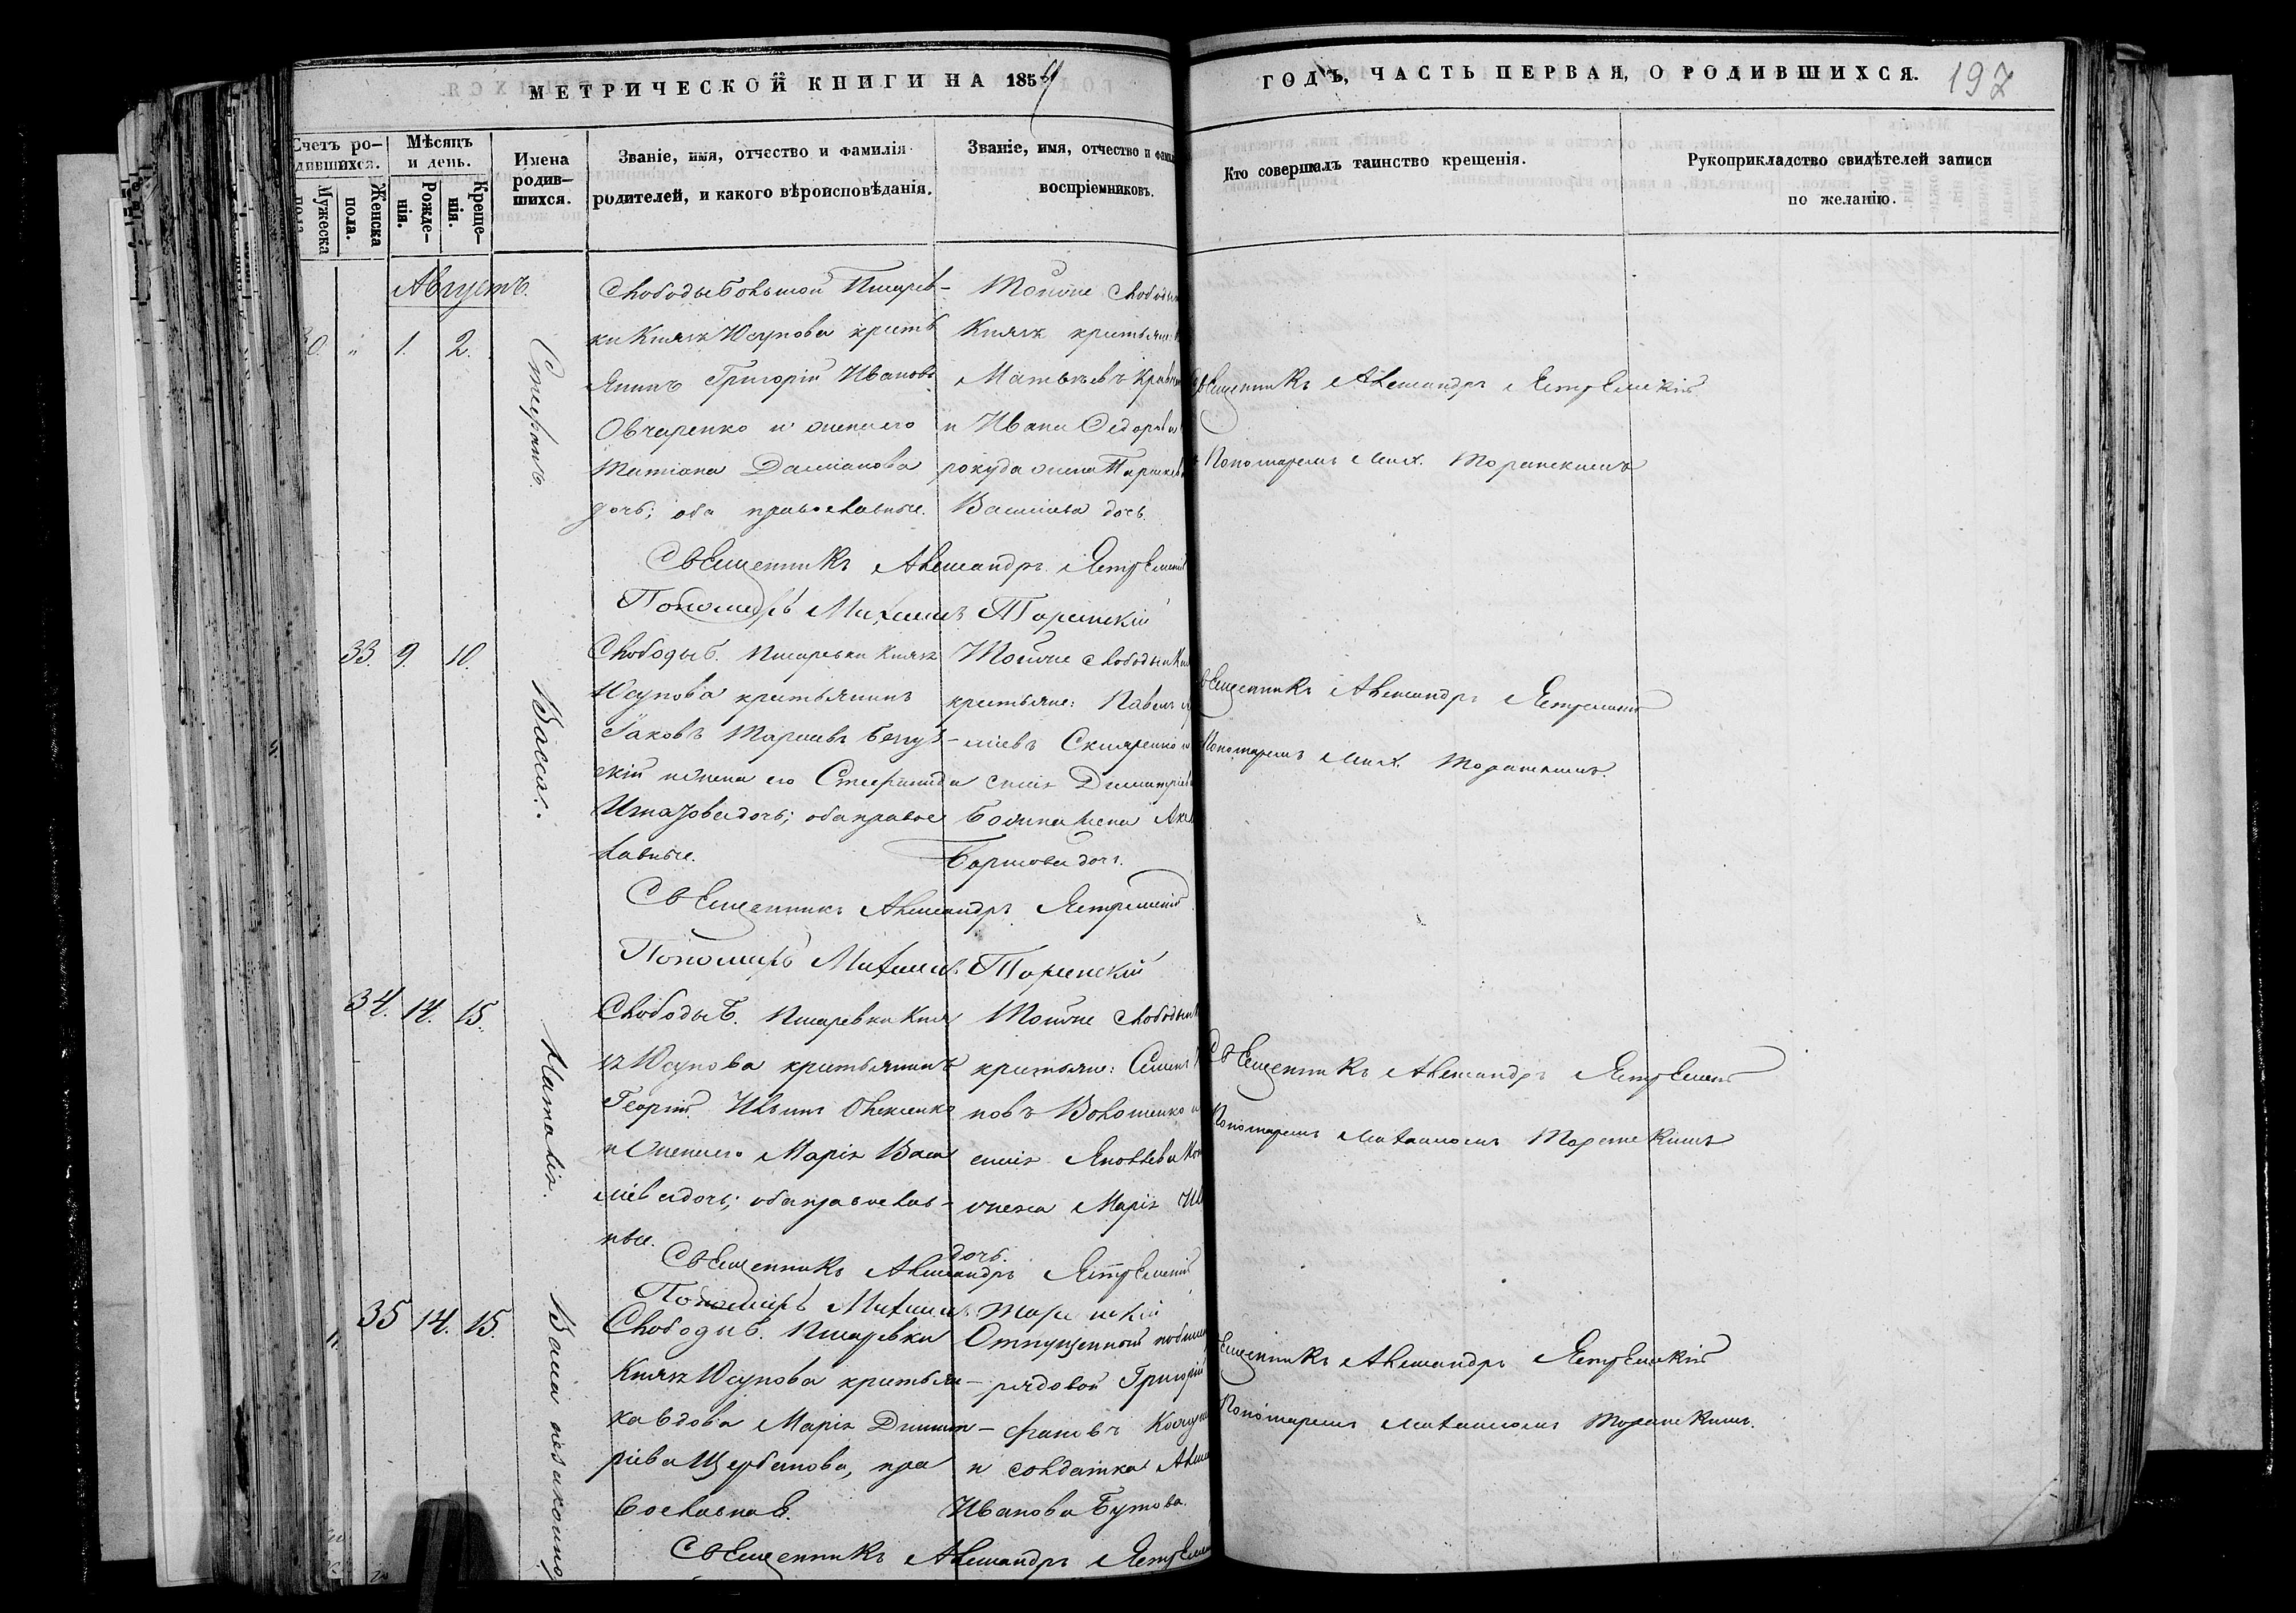 МЕТРИЧЕСКОЙ КНИГИ НА 185
ГОДЪ, ЧАСТЬ ПЕРВАЯ, О РОДИВШИХСЯ.
197
Счетъ ро-
дившихся.
Мужеска
пола
Женска
пола.
Мѣсяцъ
и день.
Рожде-
нія.
Креще-
нія.
Имена
родив-
шихся.
Званіе, имя, отчество и фамилія
родителей, и какого вѣроисповѣданія.
Званіе, имя, отчество и
воспріемниковъ.
Кто совершалъ таинство крещенія.
Рукоприкладство свидѣтелей записи
по желанію.
Августъ.
1. 2.
Стефанъ.
Слободы Большой Писарев-
ки Князя Юсупова кресть
янинъ Григорій Ивановъ
Овчаренко и жена его
Татіана Даміанова
дочь; оба православные.
Тойже слободы
Князя крестьяне:
Матвѣевъ
и Ивана Ѳедорова
жена
Васильева дочь.
Священникъ Александръ Ястремскій
Пономаремъ Мих. Торанскимъ
Священникъ Александръ Ястремскій
Пономарь Михаилъ Торанскій
33. 9. 10.
Васса.
Слободы Б. Писаревки Князя
Юсупова крестьянинъ
Іаковъ Тарасіевъ
скій и жена его Стефанида
дочь; оба правос
лавные.
Тойже слободы
крестьяне: Павелъ
Скляренко и
Димитріева
жена
дочь.
Священникъ Александръ Ястремскій
Пономаремъ Мих. Торанскимъ.
Священникъ Александръ Ястремскій
Пономарь Михаилъ Торанскій
34. 14. 15.
Наталія.
Слободы Б. Писаревки Кня
зя Юсупова крестьянинъ
Георгій Ильинъ Олексенко
и жена его Марія Васи
ліева дочь; оба православ-
ные.
Тойже слободы
крестьяне:
новъ Волошенко и
Яковлева
жена Марія
дочь.
Священникъ Александръ Ястремскій
Пономаремъ Михаиломъ Торанскимъ
Священникъ Александръ Ястремскій
Пономарь Михаилъ Торанскій
35 14. 15.
Васса незаконно
Слободы Б. Писаревки
Князя Юсупова крестьян-
ка вдова Марія Димит-
ріева Щербакова, пра
вославная.
Отпущенный
рядовой Григорій
и солдатка
Иванова Бутова.
Священникъ Александръ Ястремскій
Пономаремъ Михаиломъ Торанскимъ.
Священникъ Александръ